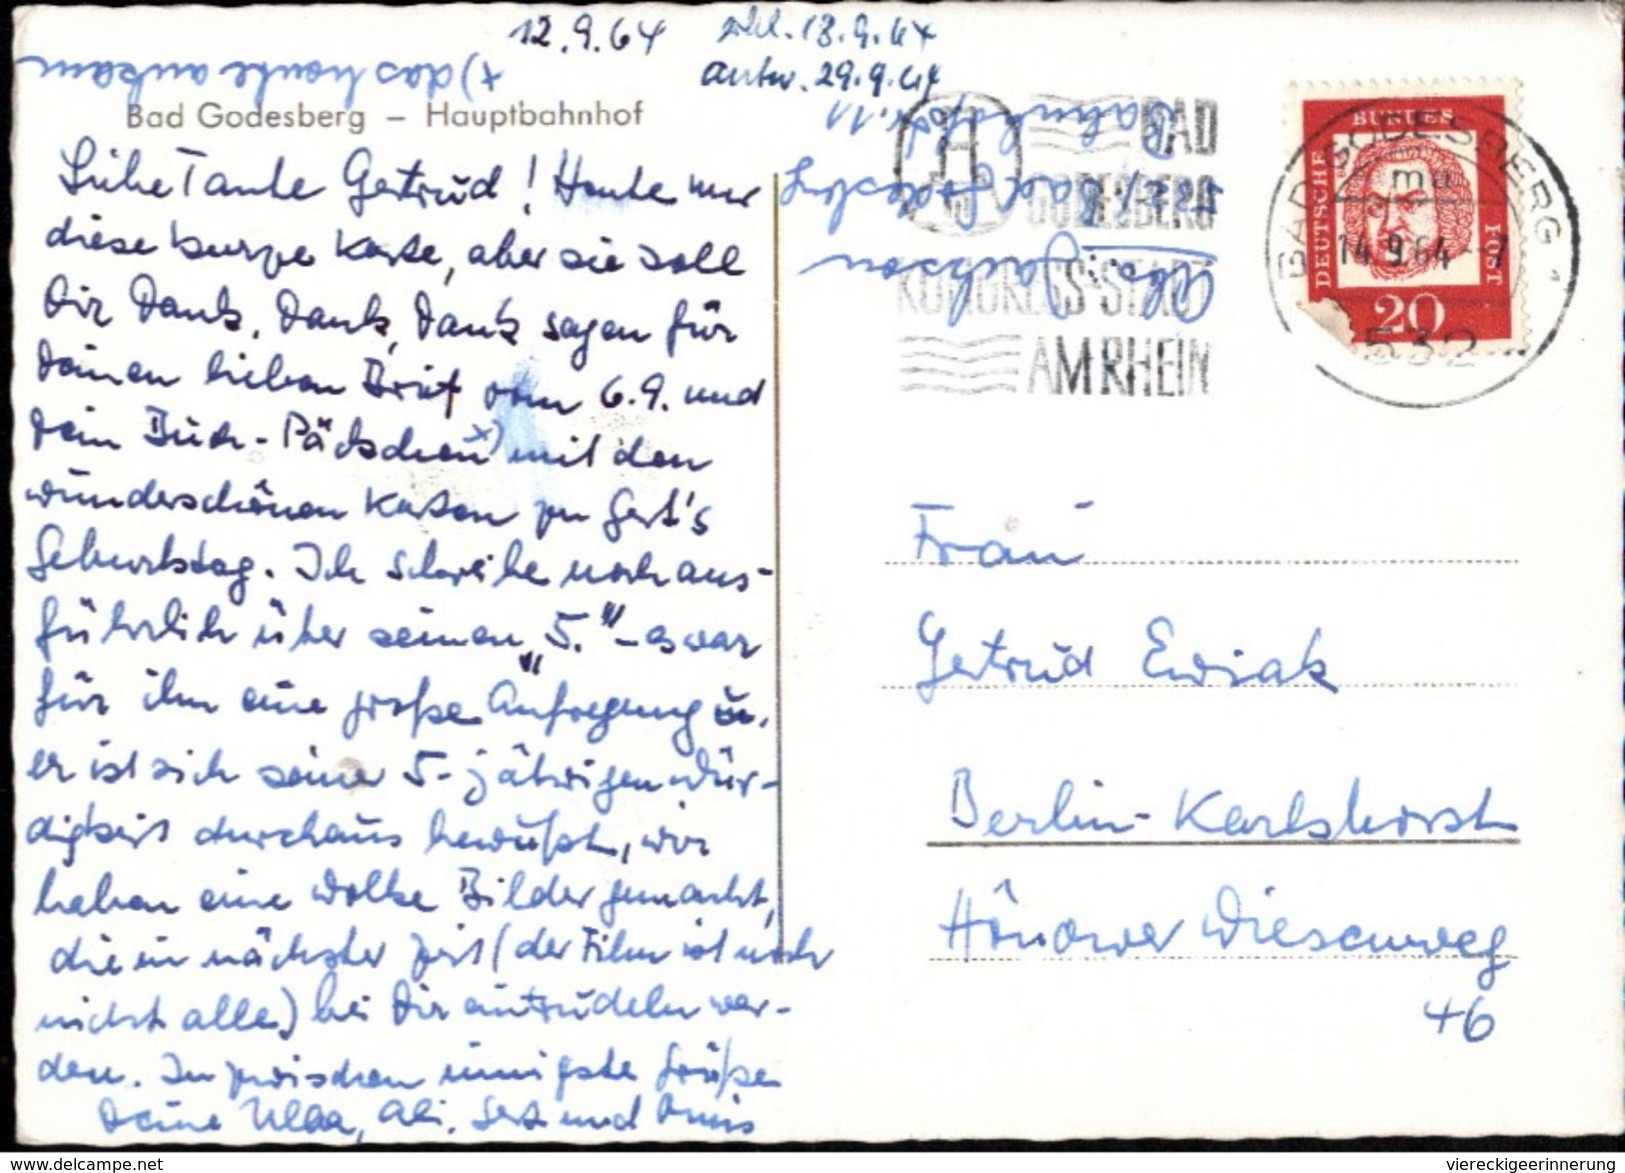 12.9.64
erh. 18.9.64
antw. 29.9.64
x) das heute ankam
Bad Godesberg – Hauptbahnhof
Liebe Tante Gertrud! Heute nur
diese kurze Karte, aber sie soll
Dir Dank, Dank, Dank sagen für
Deinen lieben Brief vom 6.9. und
Dein Buch-Päckchen x) mit den
wunderschönen Karten zu Gert's
Geburtstag. Ich schreibe noch aus-
führlich über seinen „5.“ – es war
für ihn eine große Aufregung u.
er ist sich seiner 5-jährigen Wür-
digkeit durchaus bewußt, wir
haben eine Wolke Bilder gemacht,
die in nächster Zeit (der Film ist noch
nicht alle) bei Dir eintrudeln wer-
den. Inzwischen innigste Grüße
Deine Ulla, Ali, Gert und
Abs.
532 Bad Godesberg
11
H
BAD
GODESBERG
KONGRESS-STADT
AM RHEIN
DEUTSCHE
BUNDES
POST
20
BAD GODESBERG 1
mu
14.9.64.-7
532
Frau
Gertrud Ewsiak
Berlin-Karlshorst
Hönower Wiesenweg
46
www.delcampe.net
viereckigeerinnerung